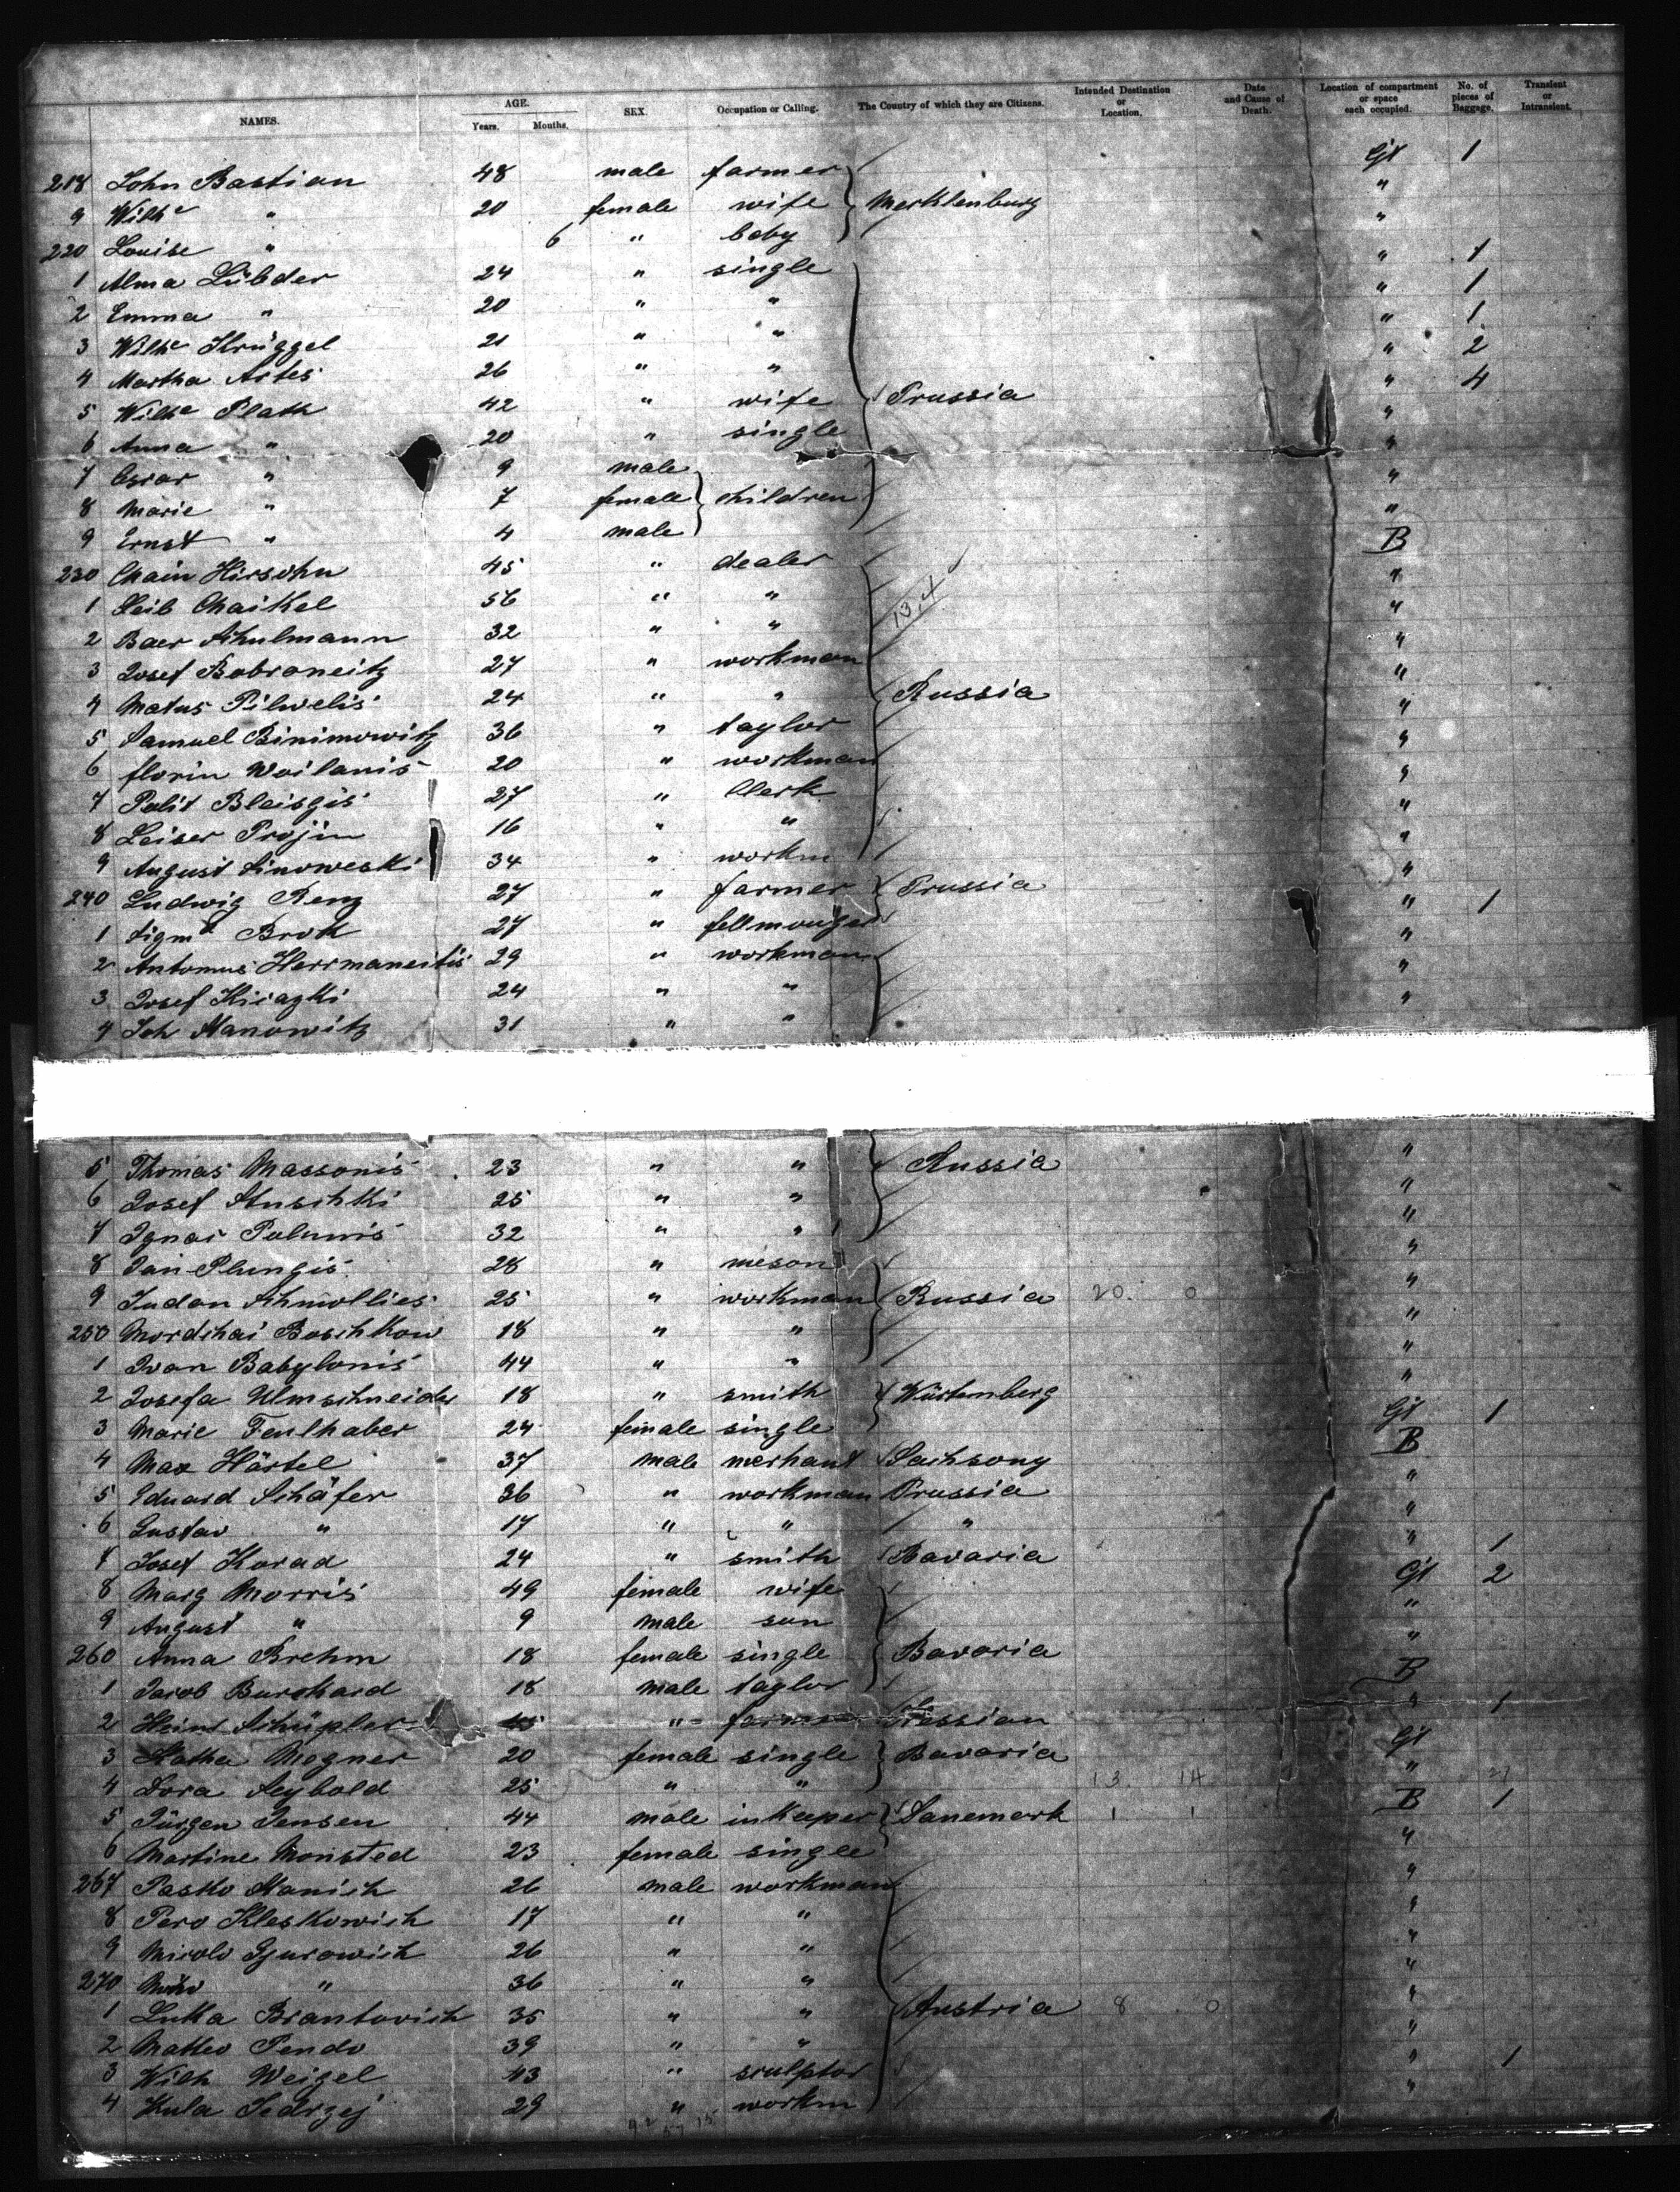 NAMES. AGE. Years. Months. SEX. Occupation or Calling. The Country of which they are Citizens. Intended Destination or Location. Date and Cause of Death. Location of compartment or space each occupied. No. of pieces of Baggage. Transient or Intransient.
218 John Bastian 48 male farmer Gt 1
9 Wilhe " 20 female wife Mecklenburg "
220 Louise " 6 " baby "
1 Alma Lübder 24 " single " 1
2 Emma " 20 " " " 1
3 Wilhe Krüggel 21 " " " 1
4 Martha Artes 26 " " " 2
5 Wilhe Plath 42 " wife Prussia " 4
6 Anna " 20 " single "
7 Oscar " 9 male "
8 Marie " 7 female children "
9 Ernst " 4 male "
230 Chain Hirsohn 45 " dealer B
1 Leib Chaikel 56 " " "
2 Baer Schulmann 32 " " "
3 Josef Bobroneitz 27 " workman "
4 Matus Pilwelis 24 " " Russia "
5 Samuel Binimowitz 36 " taylor "
6 florin Woilanis 20 " workman "
7 Palit Bleisgis 27 " Clerk "
8 Leiser Projin 16 " " "
9 August Sinoweski 34 " workm "
240 Ludwig Renz 27 " farmer Prussia "
1 Sigmd Brok 27 " fellmonger " 1
2 Antomus Herrmaneitis 29 " workman "
3 Josef Kicazki 24 " " "
4 Joh Manowitz 31 " " "
5 Thomas Massonis 23 " " Russia "
6 Josef Stuschki 25 " " "
7 Ignas Polunis 32 " " "
8 Jan Plungis 28 " meson "
9 Judan Schmollies 25 " workman Russia 20. 0 "
250 Mordshai Boschkow 18 " " "
1 Ivan Babylonis 44 " " "
2 Josefa Ulmschneider 18 " smith Würtemberg "
3 Marie Feulhaber 24 female single Gt 1
4 Max Härtel 37 male merhant Sachsony B
5 Eduard Schäfer 36 " workman Prussia "
6 Gustav " 17 " " " "
7 Josef Korad 24 " smith Bavaria " 1
8 Marg Morris 49 female wife Gt 2
9 August " 9 male son "
260 Anna Brehm 18 female single Bavaria "
1 Jacob Burchard 18 male taylor B
2 Heinr Schüpler 45 " farmer Hessian " 1
3 Katha Megner 20 female single Bavaria Gt
4 Dora Seybold 25 " " 13. 14 "
5 Jürgen Jensen 44 male inkeeper Danemark 1 1 B 1
6 Martine Monsted 23 female single "
267 Pasko Manich 26 male workman "
8 Pero Kleskowich 17 " " "
9 Micolo Gjurowich 26 " " "
270 " 36 " " "
1 Luka Brantovich 35 " " Austria 8 0 "
2 Matteo Pendo 39 " " "
3 Wilh Weigel 43 " sculptor " 1
4 Kula Jedrzej 29 " workm "